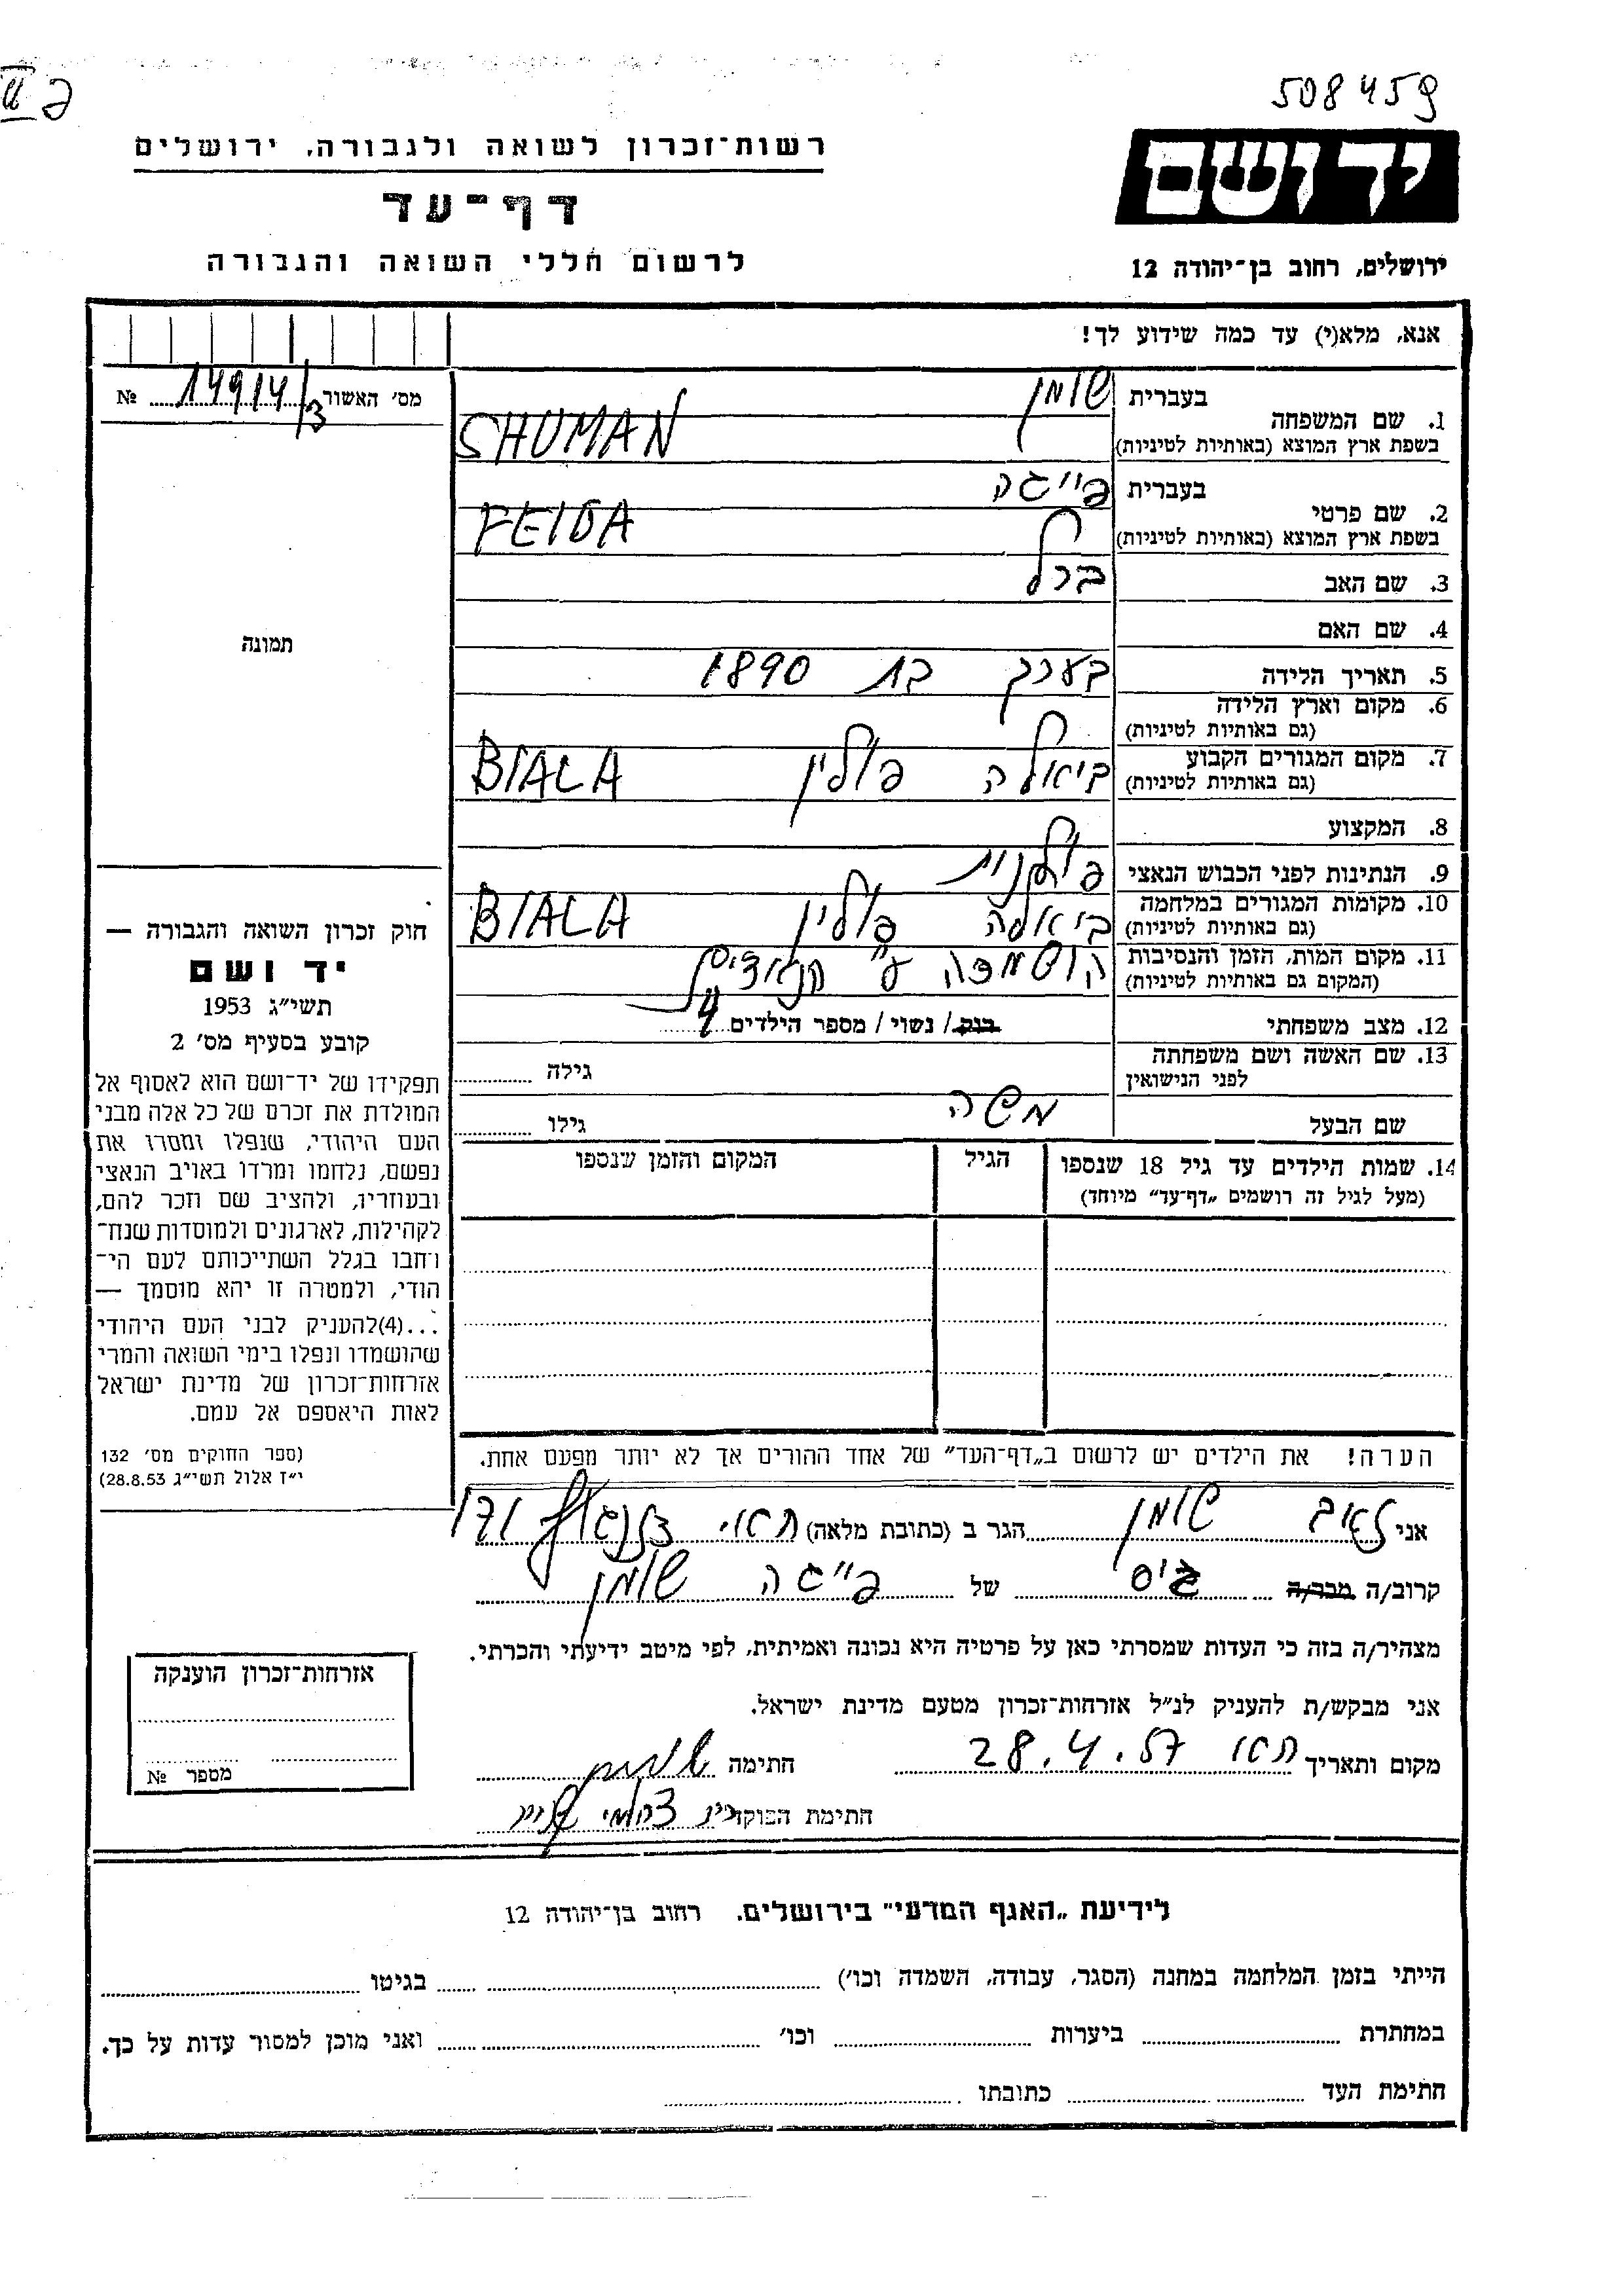 508459
פ II
יד ושם
רשות־זכרון לשואה ולגבורה, ירושלים
דף־עד
ירושלים, רחוב בן־יהודה 12
לרשום חללי השואה והגבורה
אנא, מלא(י) עד כמה שידוע לך!
מס׳ האשור 14914/3 №
1. שם המשפחה
בעברית שומן
בשפת ארץ המוצא (באותיות לטיניות) SHUMAN
2. שם פרטי
בעברית פייגה
בשפת ארץ המוצא (באותיות לטיניות) FEIGA
3. שם האב ברל
4. שם האם
תמונה
5. תאריך הלידה בערך בת 1890
6. מקום וארץ הלידה
(גם באותיות לטיניות)
7. מקום המגורים הקבוע ביאלה פולין BIALA
(גם באותיות לטיניות)
8. המקצוע
9. הנתינות לפני הכבוש הנאצי פולנית
10. מקומות המגורים במלחמה ביאלה פולין BIALA
(גם באותיות לטיניות)
11. מקום המות, הזמן והנסיבות הושמדה ע״י הנאצים
(המקום גם באותיות לטיניות)
12. מצב משפחתי רוק / נשוי / מספר הילדים 4
13. שם האשה ושם משפחתה
לפני הנישואין
גילה
שם הבעל משה גילו
14. שמות הילדים עד גיל 18 שנספו
(מעל לגיל זה רושמים „דף־עד״ מיוחד)
הגיל
המקום והזמן שנספו
חוק זכרון השואה והגבורה —
יד ושם
תשי״ג 1953
קובע בסעיף מס׳ 2
תפקידו של יד־ושם הוא לאסוף אל
המולדת את זכרם של כל אלה מבני
העם היהודי, שנפלו ומסרו את
נפשם, נלחמו ומרדו באויב הנאצי
ובעוזריו, ולהציב שם וזכר להם,
לקהילות, לארגונים ולמוסדות שנח־
רחבו בגלל השתייכותם לעם הי־
הודי, ולמטרה זו יהא מוסמך —
...(4)להעניק לבני העם היהודי
שהושמדו ונפלו בימי השואה והמרי
אזרחות־זכרון של מדינת ישראל
לאות היאספם אל עמם.
(ספר החוקים מס׳ 132
י״ז אלול תשי״ג 28.8.53)
הערה! את הילדים יש לרשום ב„דף־העד״ של אחד ההורים אך לא יותר מפעם אחת.
אני זאב שומן הגר ב (כתובת מלאה)
קרוב/ה מכר/ה גיס של פייגה שומן
מצהיר/ה בזה כי העדות שמסרתי כאן על פרטיה היא נכונה ואמיתית, לפי מיטב ידיעתי והכרתי.
אני מבקש/ת להעניק לנ״ל אזרחות־זכרון מטעם מדינת ישראל.
מקום ותאריך 28.4.57 חתימה
חתימת הפוקד
אזרחות־זכרון הוענקה
מספר №
לידיעת „האגף המדעי״ בירושלים, רחוב בן־יהודה 12
הייתי בזמן המלחמה במחנה (הסגר, עבודה, השמדה וכו׳) בגיטו
במחתרת ביערות וכו׳ ואני מוכן למסור עדות על כך.
חתימת העד כתובתו